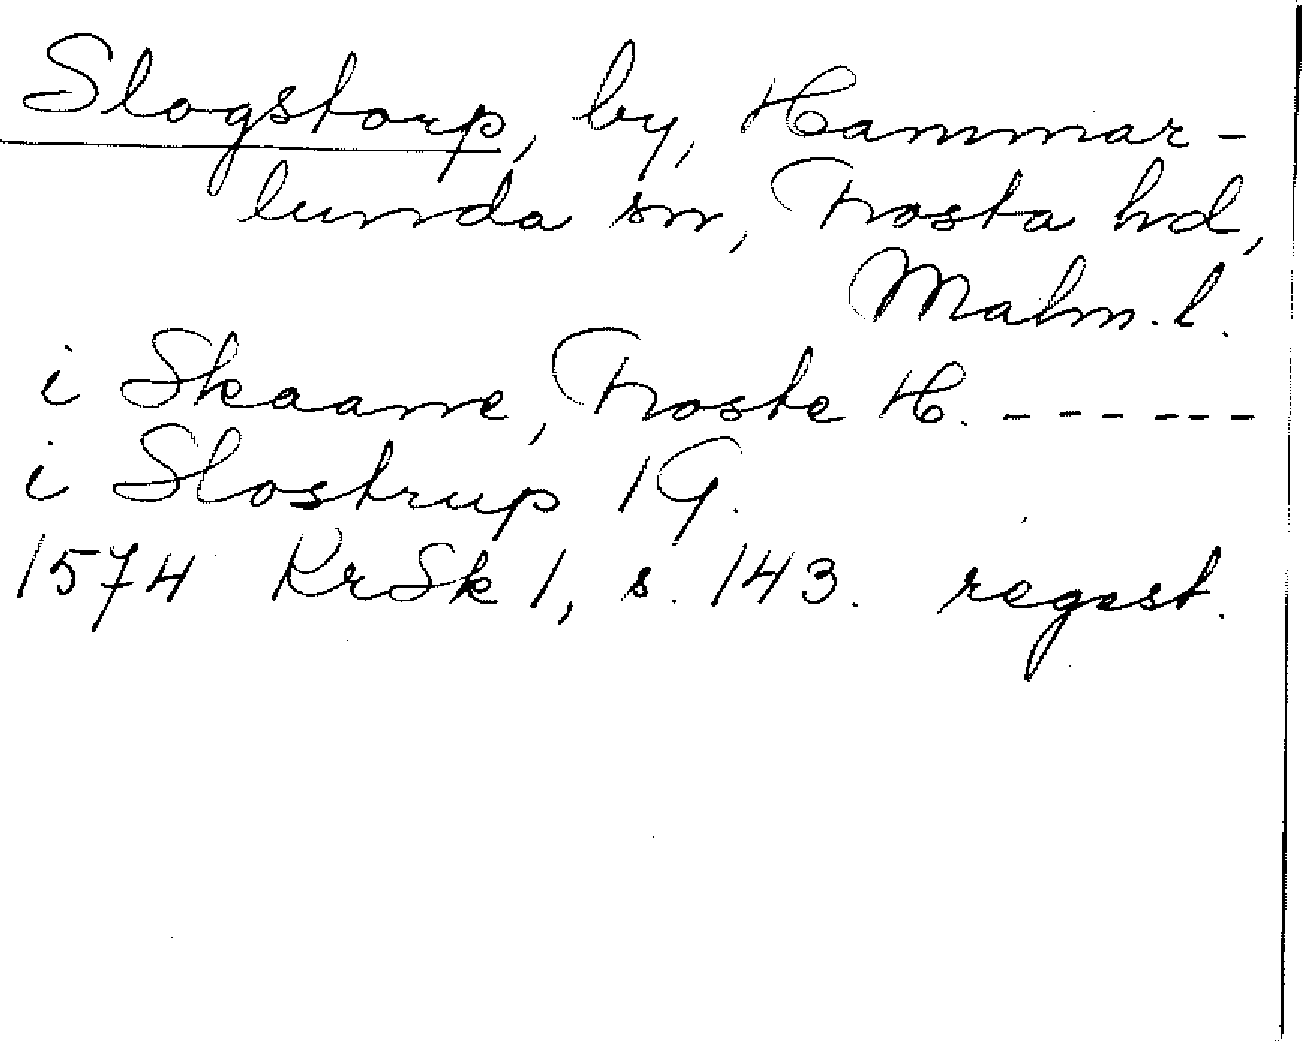 Slogstorp, by, Hammar-
lunda sn, Frosta hd,
Malm. l.
i Skaane, Froste H. ------
i Slostrup 1 G.
1574 KrSk 1, s. 143. regest.